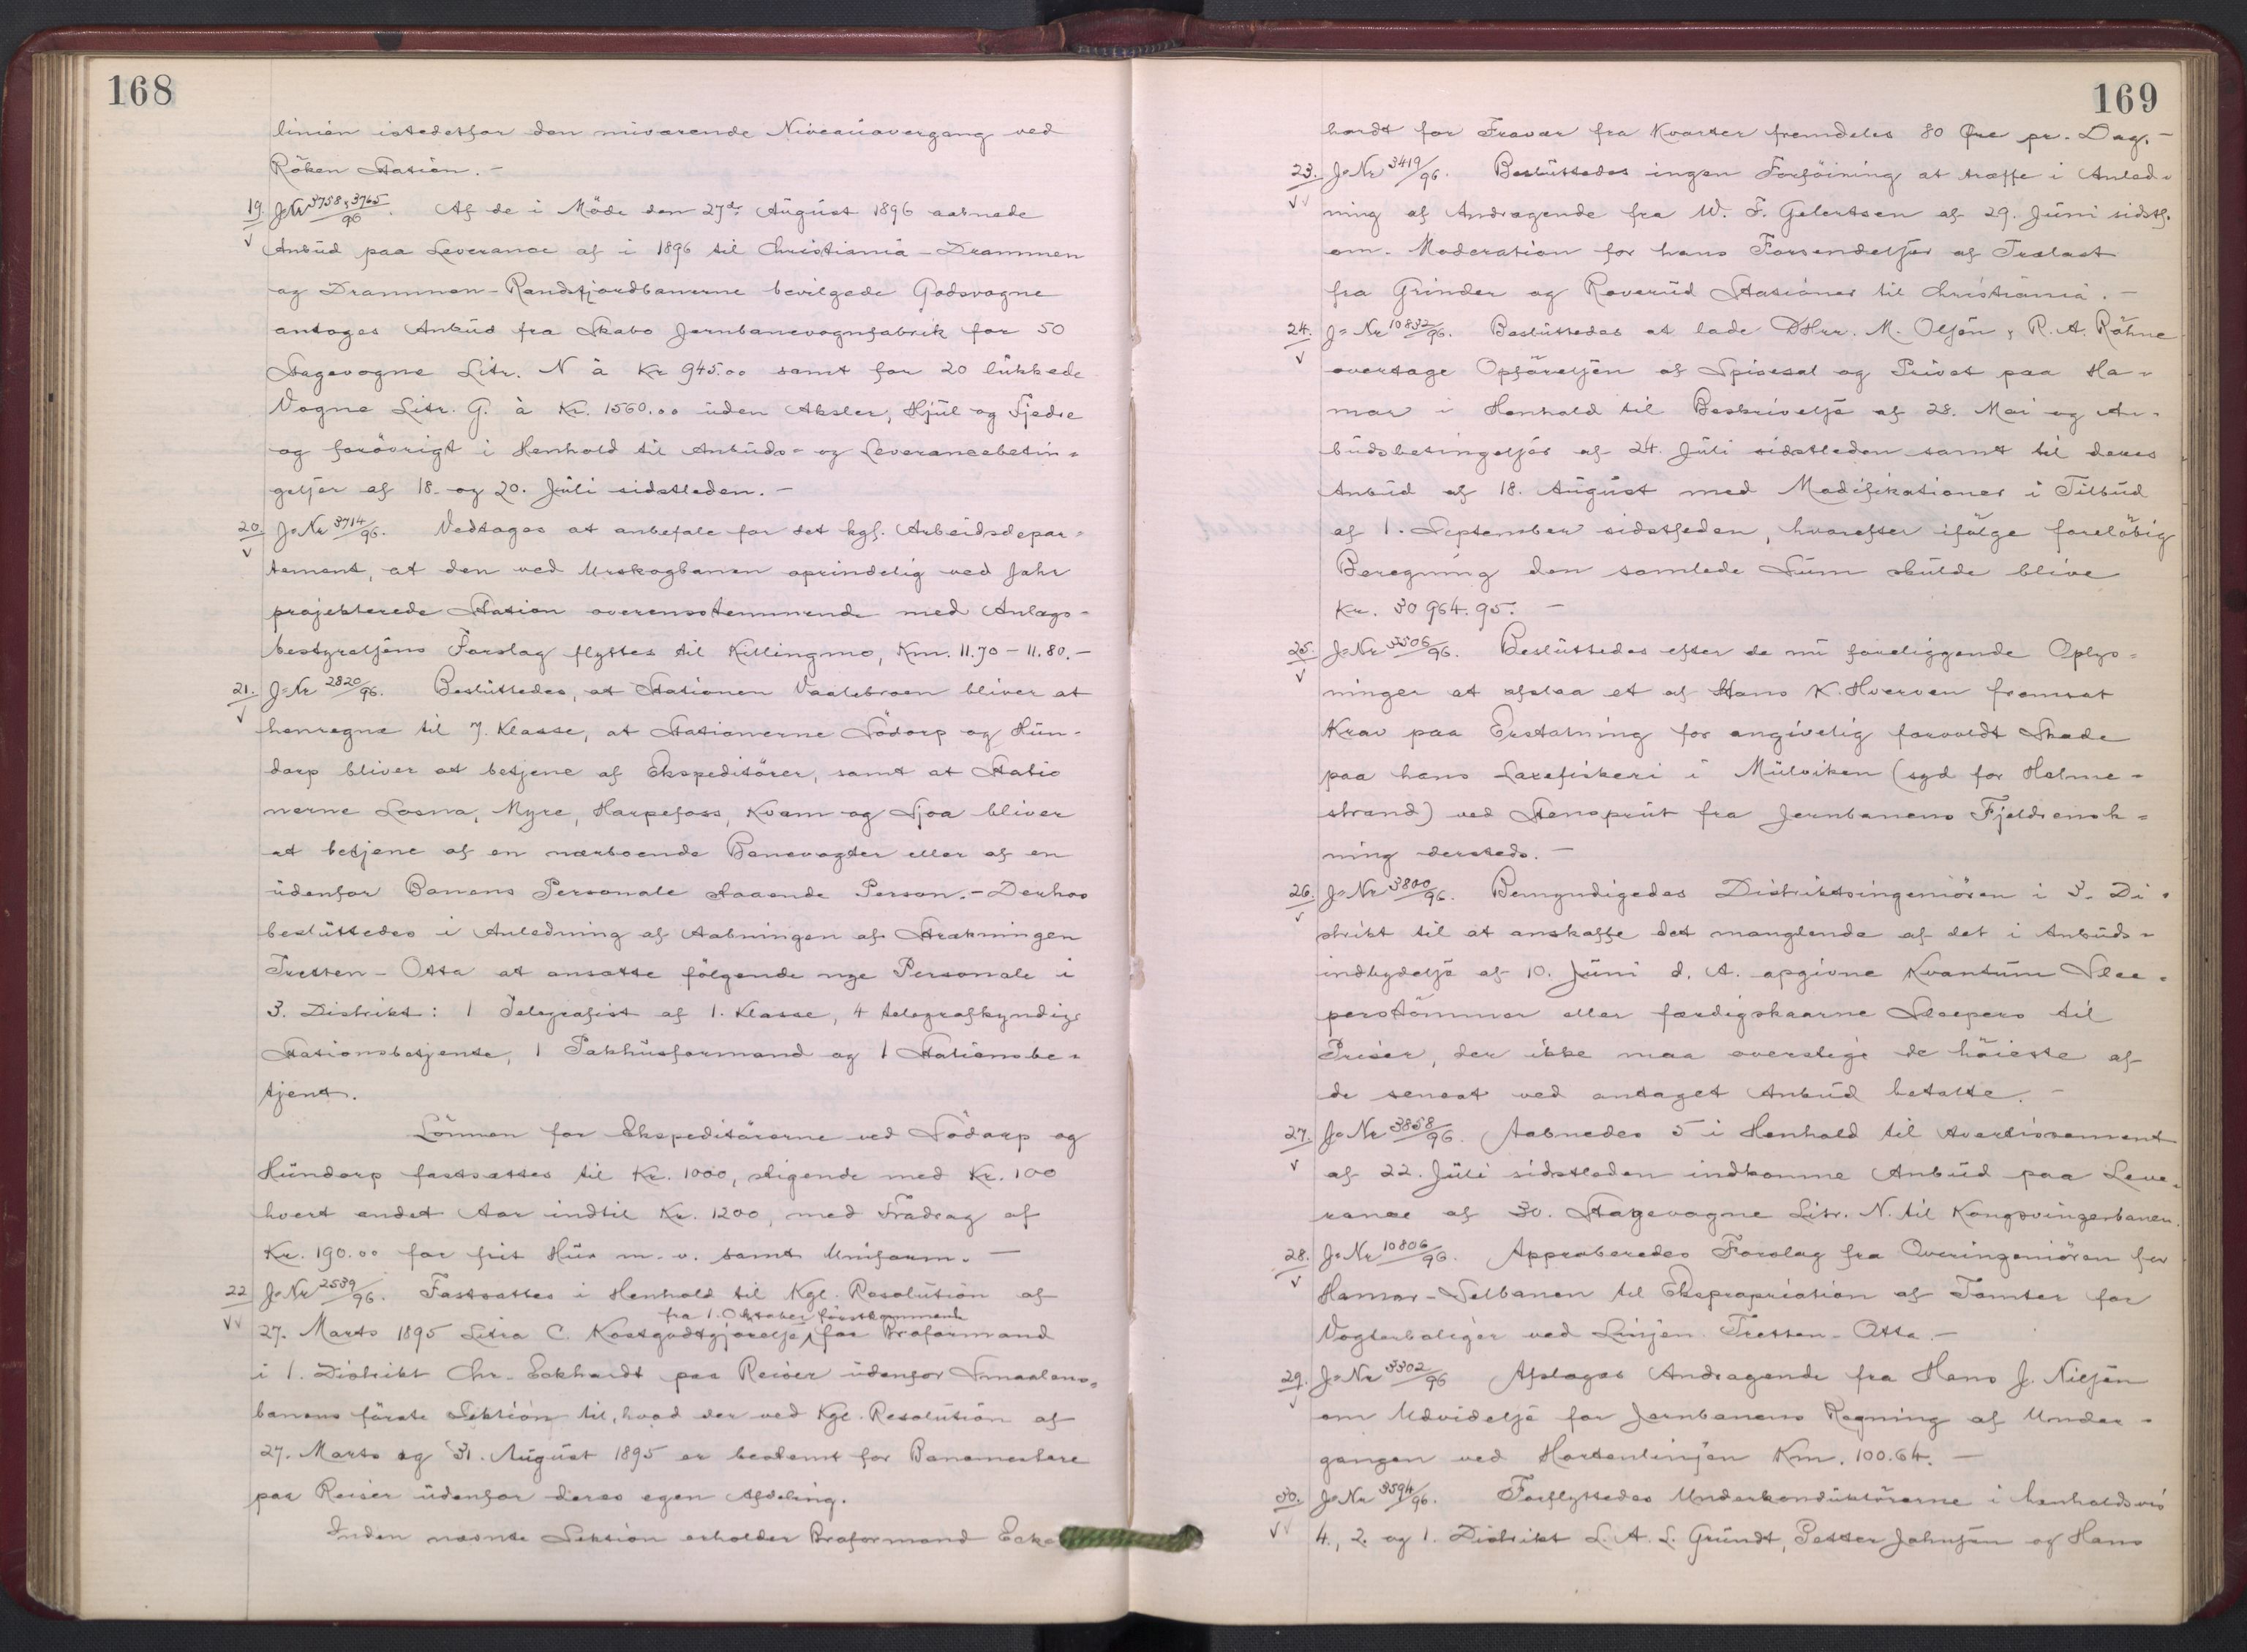 168
linien istedetfor den nuværende Niveauovergang ved
Röken Station. -
19. J-Nr 3758, 3765/96. Af de i Möde den 27de August 1896 aabnede
Anbud paa Leverance af i 1896 til Christiania - Drammen
og Drammen - Randsfjordbanerne bevilgede Godsvogne
antoges Anbud fra Skabo Jernbanevognfabrik for 50
Stagevogne Litr. N à Kr 945.00 samt for 20 lukkede
Vogne Litr. G. à Kr. 1560.00 uden Aksler, Hjul og Fjedre
og forövrigt i Henhold til Anbuds- og Leverancebetin-
gelser af 18. og 20. Juli sidstleden. -
20. J-Nr 3714/96. Vedtoges at anbefale for det kgl. Arbeidsdepar-
tement, at den ved Urskogbanen oprindelig ved Jahr
projekterede Station overensstemmende med Anlægs-
bestyrelsens Forslag flyttes til Killingmo, Km. 11.70 - 11.80. -
21. J-Nr 2820/96. Besluttedes, at Stationen Vaalebroen bliver at
henregne til 7. Klasse, at Stationerne Södorp og Hun-
dorp bliver at betjene af Ekspeditörer, samt at Statio
nerne Losna, Myre, Harpefoss, Kvam og Sjoa bliver
at betjene af en nærboende Banevogter eller af en
udenfor Banens Personale staaende Person. - Derhos
besluttedes i Anledning af Aabningen af Strækningen
Tretten - Otta at ansætte fölgende nye Personale i
3. Distrikt: 1 Telegrafist af 1. Klasse, 4 telegrafkyndige
Stationsbetjente, 1 Pakhusformand og 1 Stationsbe-
tjent.
Lönnen for Ekspeditörerne ved Södorp og
Hundorp fastsættes til Kr. 1000, stigende med Kr. 100
hvert andet Aar indtil Kr. 1200, med Fradrag af
Kr. 190.00 for frit Hus m. v. samt Uniform. -
22 J-Nr 2589/96. Fastsattes i Henhold til Kgl. Resolution af
fra 1. Oktober förstkommende
27. Marts 1895 Litra C. Kostgodtgjörelse for Broformand
i 1. Distrikt Chr. Eckhardt paa Reiser udenfor Smaalens-
banens förste Sektion til, hvad der ved Kgl. Resolution af
27. Marts og 31. August 1895 er bestemt for Banemestere
paa Reiser udenfor deres egen Afdeling.
Inden nævnte Sektion erholder Broformand Eck-
169
hardt for Fravær fra Kvarter fremdeles 80 Øre pr. Dag. -
23. J-Nr 3419/96. Besluttedes ingen Forföining at træffe i Anled-
ning af Andragende fra W. F. Gelertsen af 29. Juni sidstl.
om Moderation for hans Forsendelser af Trælast
fra Grinder og Roverud Stationer til Christiania. -
24. J-Nr 10832/96. Besluttedes at lade DHrr. M. Olsen & R. A. Röhne
overtage Opförelsen af Spisesal og Privet paa Ha-
mar i Henhold til Beskrivelse af 28. Mai og An-
budsbetingelser af 24. Juli sidstleden samt til deres
Anbud af 18. August med Modifikationer i Tilbud
af 1. September sidstleden, hvorefter ifölge forelöbig
Beregning den samlede Sum skulde blive
Kr. 30 964.95. -
25. J-Nr 3506/96. Besluttedes efter de nu foreliggende Oplys-
ninger at afslaa et af Hans K. Hverven fremsat
Krav paa Erstatning for angivelig forvoldt Skade
paa hans Laxefiskeri i Mulviken (syd for Holme-
strand) ved Stensprut fra Jernbanens Fjeldrensk-
ning dersteds. -
26. J-Nr 3800/96. Bemyndigedes Distriktsingeniören i 3. Di-
strikt til at anskaffe det manglende af det i Anbuds-
indbydelse af 10. Juni d. A. opgivne Kvantum Slee-
perstömmer eller færdigskaarne Sleepers til
Priser, der ikke maa overstige de höieste af
de senest ved antaget Anbud betalte. -
27. J-Nr 3858/96. Aabnedes 5 i Henhold til Avertissement
af 22. Juli sidstleden indkomne Anbud paa Leve-
rance af 30. Stagevogne Litr. N. til Kongsvingerbanen.
28. J-Nr 10806/96. Approberedes Forslag fra Overingeniören for
Hamar - Selbanen til Ekspropriation af Tomter for
Vogterboliger ved Linjen Tretten - Otta. -
29. J-Nr 3302/96 Afsloges Andragende fra Hans J. Nielsen
om Udvidelse for Jernbanens Regning af Under-
gangen ved Hortenlinjen Km. 100.64. -
30. J-Nr 3594/96. Forflyttedes Underkonduktörerne i henholdsvis
4., 2. og 1. Distrikt L. A. L. Grundt, Petter Johnsen og Hans